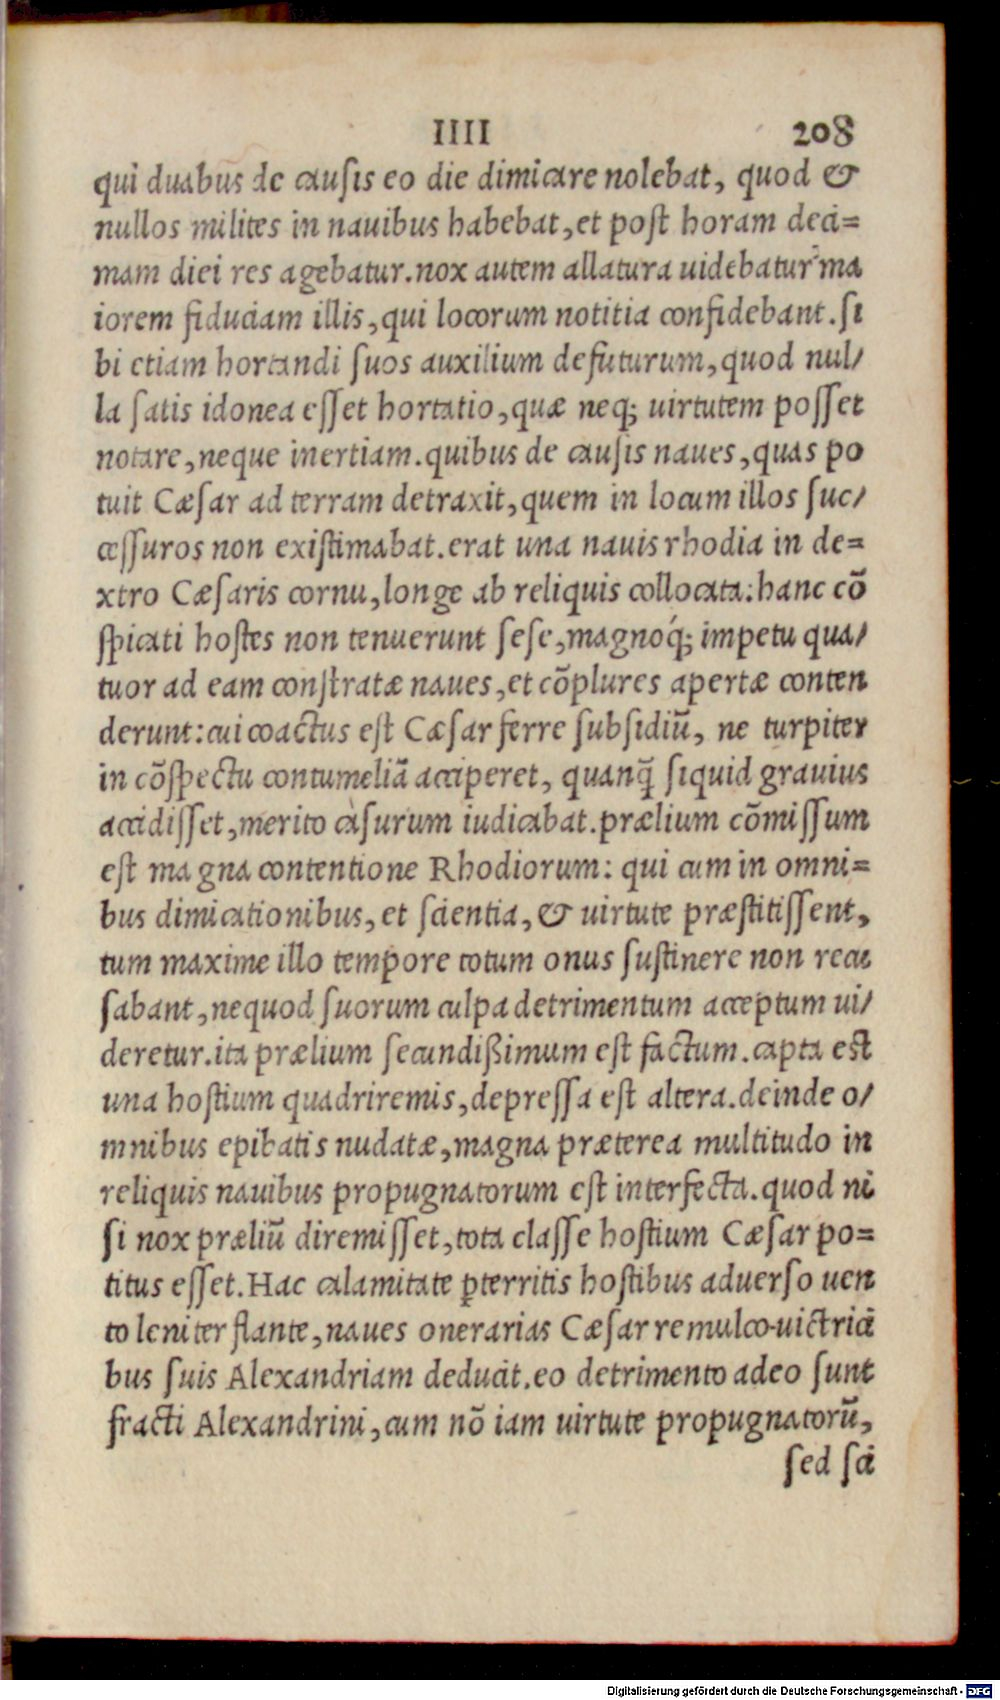 IIII 208
qui duabus de causis eo die dimicare nolebat, quod &
nullos milites in nauibus habebat, et post horam deci=
mam diei res agebatur. nox autem allatura uidebatur ma
iorem fiduciam illis, qui locorum notitia confidebant. si
bi etiam hortandi suos auxilium defuturum, quod nul/
la satis idonea esset hortatio, quæ neq; uirtutem posset
notare, neque inertiam. quibus de causis naues, quas po
tuit Cæsar ad terram detraxit, quem in locum illos suc/
cessuros non existimabat. erat una nauis rhodia in de=
xtro Cæsaris cornu, longe ab reliquis collocata: hanc cõ
spicati hostes non tenuerunt sese, magnoq́; impetu qua/
tuor ad eam constratæ naues, et cõplures apertæ conten
derunt: cui coactus est Cæsar ferre subsidiũ, ne turpiter
in cõspectu contumeliã acciperet, quanq̃ siquid grauius
accidisset, merito càsurum iudicabat. prælium cõmissum
est magna contentione Rhodiorum: qui cum in omni=
bus dimicationibus, et scientia, & uirtute præstitissent,
tum maxime illo tempore totum onus sustinere non recu
sabant, nequod suorum culpa detrimentum acceptum ui/
deretur. ita prælium secundißimum est factum. capta est
una hostium quadriremis, depressa est altera. deinde o/
mnibus epibatis nudatæ, magna præterea multitudo in
reliquis nauibus propugnatorum est interfecta. quod ni
si nox præliũ diremisset, tota classe hostium Cæsar po=
titus esset. Hac calamitate ꝑterritis hostibus aduerso uen
to leniter flante, naues onerarias Cæsar remulco uictrici
bus suis Alexandriam deducit. eo detrimento adeo sunt
fracti Alexandrini, cum nõ iam uirtute propugnatorũ,
sed sci
Digitalisierung gefördert durch die Deutsche Forschungsgemeinschaft - DFG